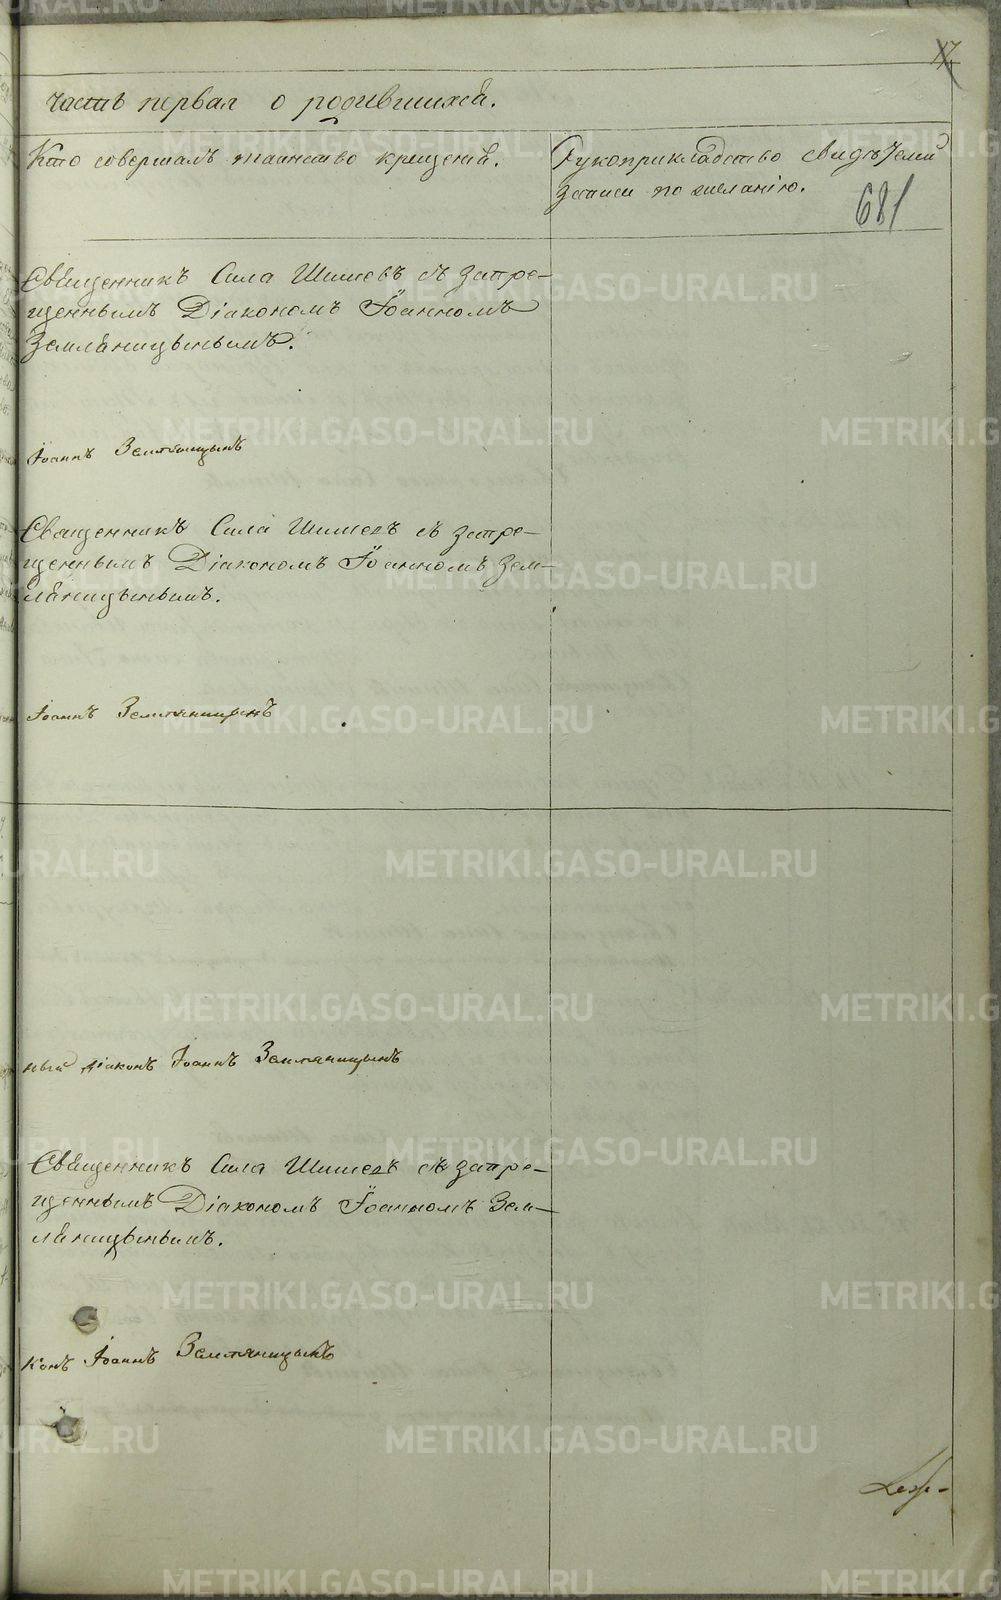 17
часть первая о родившихся.
Кто совершалъ таинство крещенія.
Рукоприкладство свидѣтелей
записи по желанію.
681
Священникъ Сила Шишевъ съ запре-
щеннымъ Діакономъ Іоанномъ
Земляницынымъ.
Іоаннъ Земляницынъ
Священникъ Сила Шишевъ съ запре-
щеннымъ Діакономъ Іоанномъ Зем-
ляницынымъ.
Іоаннъ Земляницынъ
ный діаконъ Іоаннъ Земляницынъ
Священникъ Сила Шишевъ съ запре-
щеннымъ Діакономъ Іоанномъ Зем-
ляницынымъ.
конъ Іоаннъ Земляницынъ
METRIKI.GASO-URAL.RU